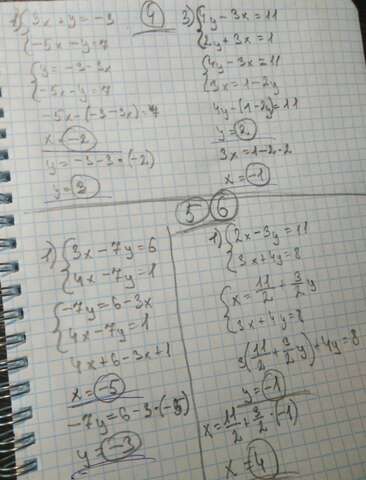 1) { 3x + y = -3
{ -5x - y = 7
{ y = -3 - 3x
{ -5x - y = 7
-5x - (-3 - 3x) = 7
x = -2
y = -3 - 3 · (-2)
y = 3
4
3) { 4y - 3x = 11
{ 2y + 3x = 1
{ 4y - 3x = 11
{ 3x = 1 - 2y
4y - (1 - 2y) = 11
y = 2
3x = 1 - 2 · 2
x = -1
5 6
1) { 3x - 7y = 6
{ 4x - 7y = 1
{ -7y = 6 - 3x
{ 4x - 7y = 1
4x + 6 - 3x + 1
x = -5
-7y = 6 - 3 · (-5)
y = -3
1) { 2x - 3y = 11
{ 3x + 4y = 8
{ x = 11/2 + 3/2 y
{ 3x + 4y = 8
3(11/2 + 3/2 y) + 4y = 8
y = -1
x = 11/2 + 3/2 · (-1)
x = 4